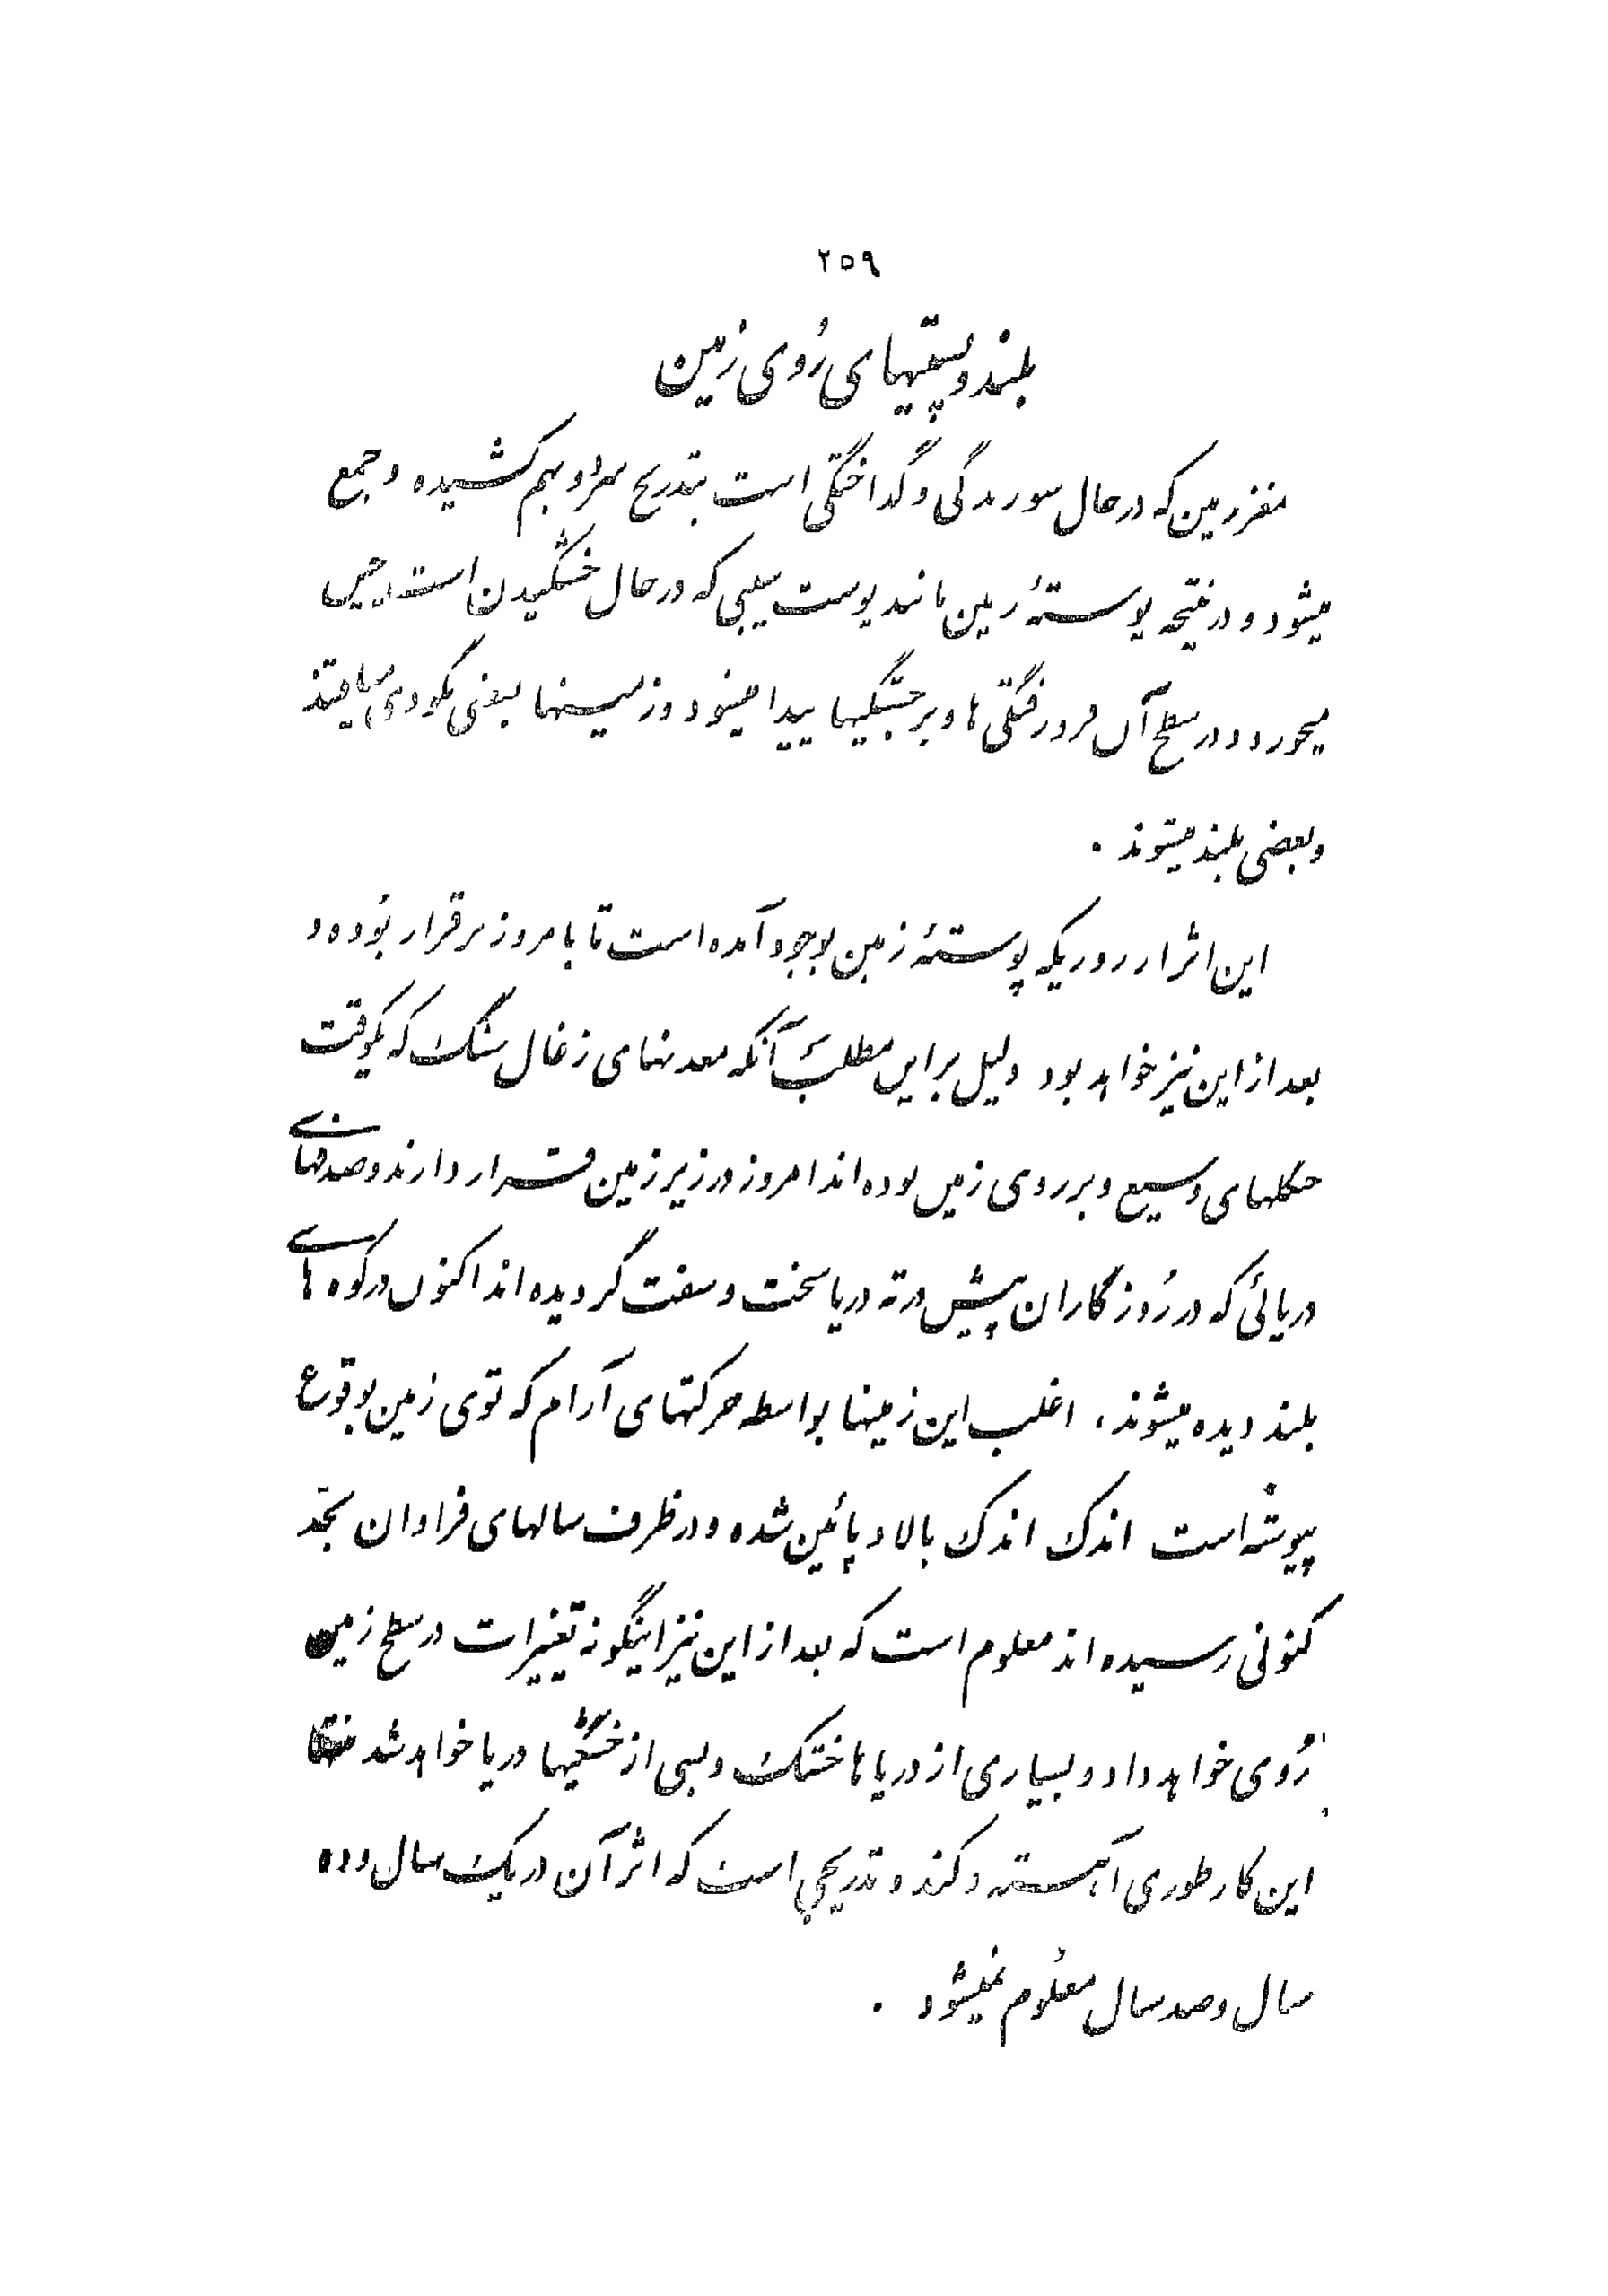 ۲۵۹
بلند و پستیهای رُوی زمین
مغز زمین که در حال سوزندگی و گداختگی است بتدریج سرد و بهم کشیده و جمع
میشود و در نتیجه پوستهٔ زمین مانند پوست سیبی که در حال خشکیدن است چین
میخورد و در سطح آن فرورفتگی‌ها و برجستگیها پیدا میشود و زمینها بعضی بگودی میافتند
و بعضی بلند میشوند .
این اثر از روزیکه پوستهٔ زمین بوجود آمده است تا بامروز برقرار بوده و
بعد از این نیز خواهد بود دلیل بر این مطلب آنکه معدنهای زغال سنگ که یکوقت
جنگلهای وسیع و بر روی زمین بوده‌اند امروز در زیر زمین قرار دارند و صدفهای
دریائی که در رُوزگاران پیش در ته دریا سخت و سفت گردیده‌اند اکنون در کوه‌های
بلند دیده میشوند ، اغلب این زمینها بواسطه حرکتهای آرام که توی زمین بوقوع
پیوسته است اندک اندک بالا و پائین شده و در ظرف سالهای فراوان بحد
کنونی رسیده‌اند معلوم است که بعد از این نیز اینگونه تغییرات در سطح زمین
رُوی خواهد داد و بسیاری از دریاها خشک و بسی از خشکیها دریا خواهد شد منتها
این کار طوری آهسته و کند و تدریجی است که اثر آن در یک سال و ده
سال و صد سال معلوم نمیشود .